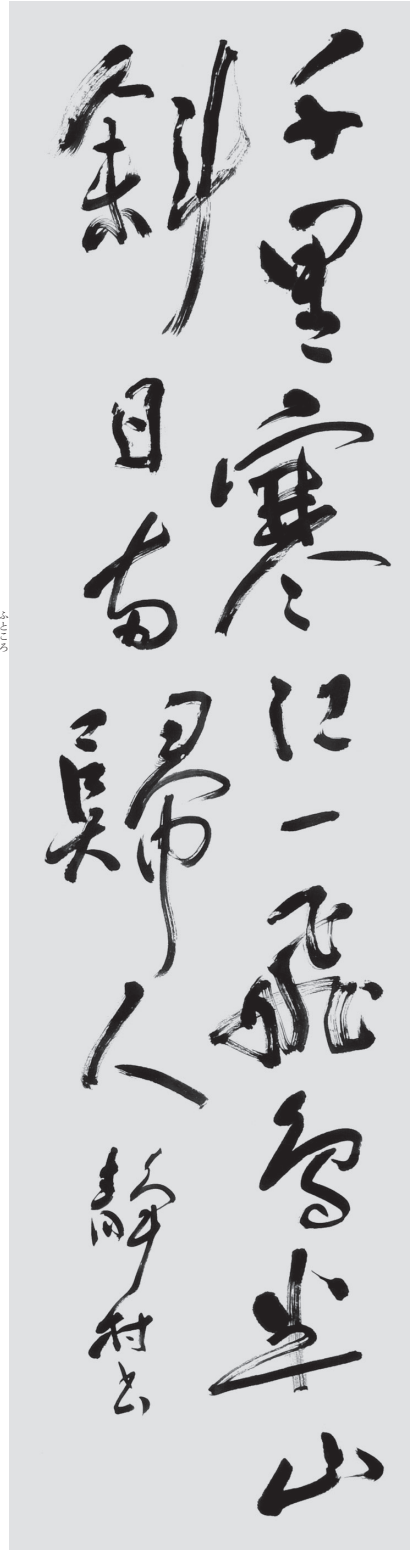 千里寒江一飛鳥半山
斜日両歸人 靜村書
ふところ